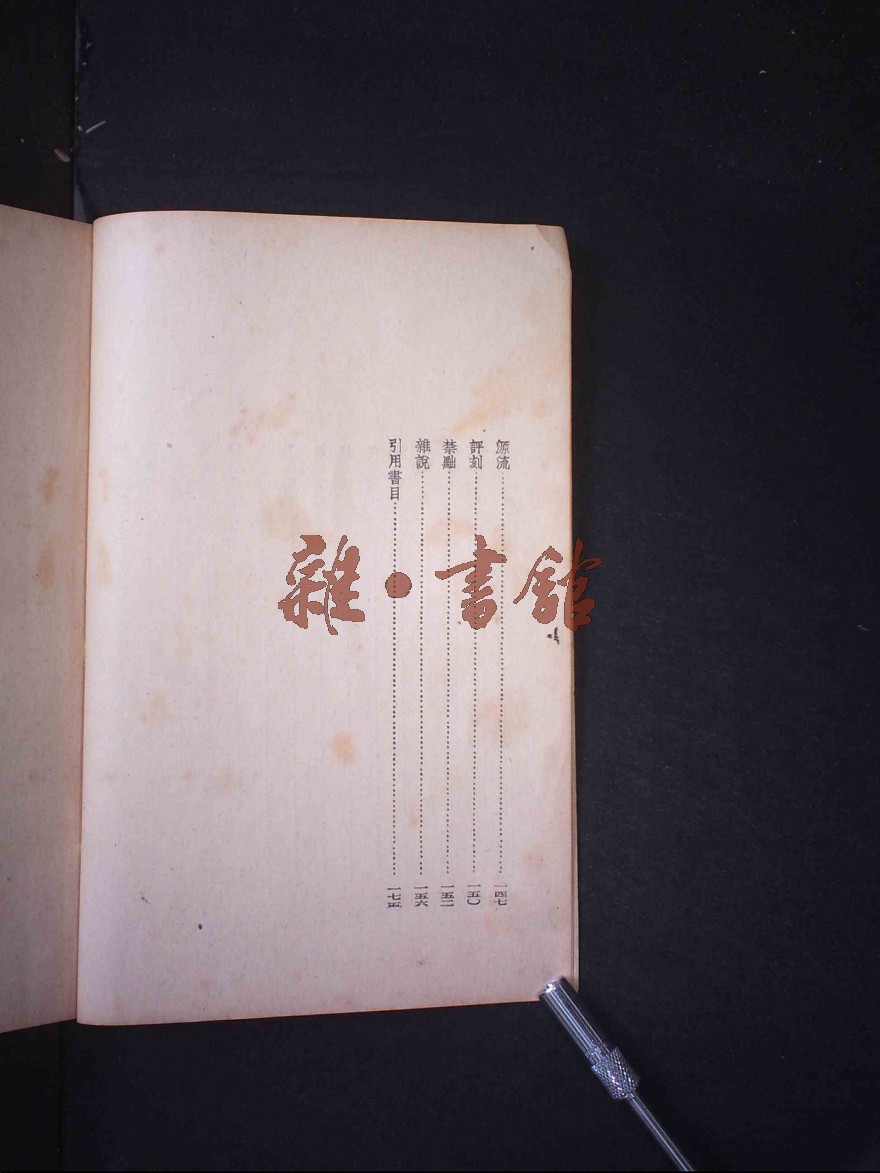 源流……一四七
評刻……一五〇
禁黜……一五二
雜說……一五六
引用書目……一七五
雜·書館